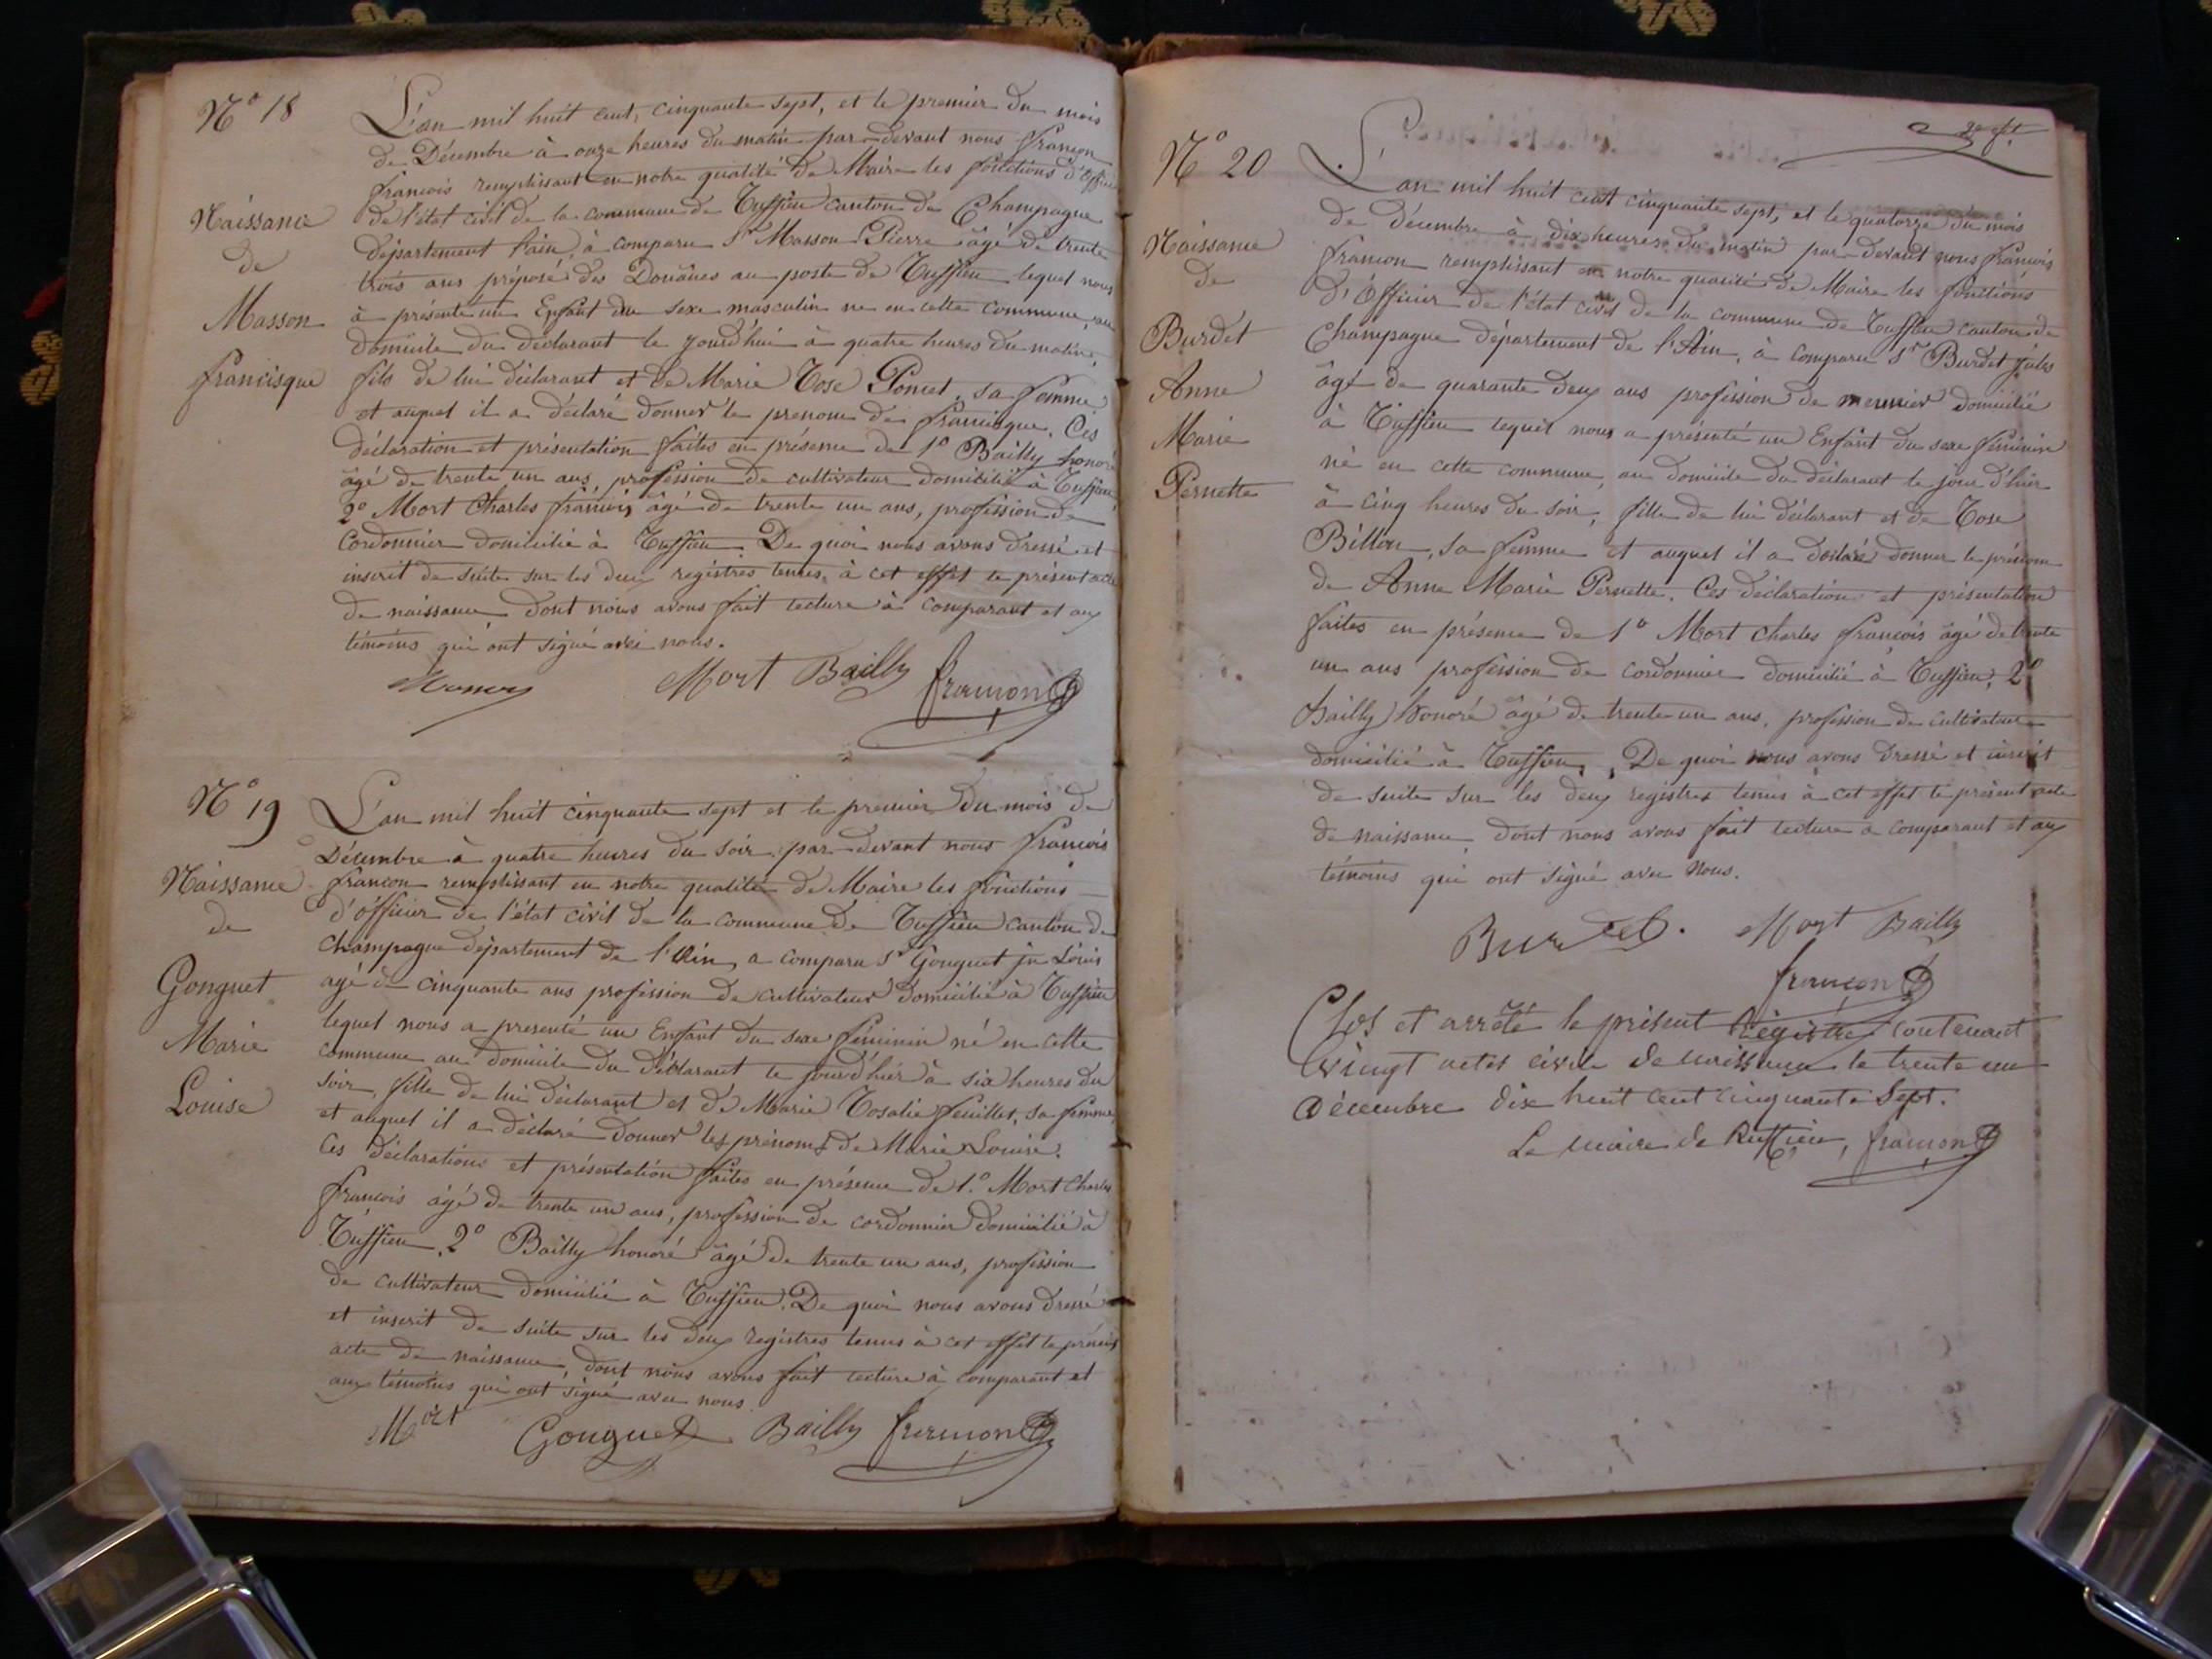 N° 18
Naissance
de
Masson
francisque
L'an mil huit cent, cinquante sept, et le premier du mois
de Décembre à onze heures du matin par-devant nous françon
francois remplissant en notre qualité de Maire les fonctions d'Officier
de l'état civil de la commune de Ruffieu canton de Champagne
département l'ain, à comparu Sr Masson Pierre âgé de trente
trois ans préposé des Douânes au poste de Ruffieu lequel nous
à présenté un Enfant du sexe masculin né en cette commune, au
domicile du déclarant le jourd'hui à quatre heures du matin,
fils de lui déclarant et de Marie Rose Poncet, sa femme
et auquel il a déclaré donner le prenom de francisque. Ces
déclaration et présentation faites en présence de 1° Bailly honoré
âgé de trente un ans, profession de cultivateur domicilié à Ruffieu,
2° Mort Charles françois âgé de trente un ans, profession de
Cordonnier domicilié à Ruffieu. De quoi nous avons dressé et
inscrit de suite sur les deux registres tenus, à cet effet le présent acte
de naissance dont nous avons fait lecture à comparant et aux
témoins qui ont signé avec nous.
Masson Mort Bailly françon
N° 19
Naissance
de
Gonguet
Marie
Louise
L'an mil huit cinquante sept et le premier du mois de
Décembre à quatre heures du soir par-devant nous françois
françon remplissant en notre qualité de Maire les fonctions
d'officier de l'état civil de la commune de Ruffieu canton de
Champagne département de l'Ain, a comparu Sr Gonguet jn Louis
agé de cinquante ans profession de cultivateur domicilié à Ruffieu
lequel nous a presenté un Enfant du sexe féminin né en cette
commune au domicile du déclarant le jour d'hier à six heures du
soir, fille de lui déclarant et de Marie Rosalie feuillet, sa femme
et auquel il a déclaré donner les prénoms de Marie Louise.
Ces déclarations et présentation faites en présence de 1.° Mort Charles
françois âgé de trente un ans, profession de cordonnier domicilié à
Ruffieu, 2° Bailly honoré âgé de trente un ans, profession
de cultivateur domicilié à Ruffieu. De quoi nous avons dressé
et inscrit de suite sur les deux registres tenus à cet effet le présent
acte de naissance, dont nous avons fait lecture à comparant et
aux témoins qui ont signé avec nous
Mort Gonguet Bailly françon
N° 20
Naissance
de
Burdet
Anne
Marie
Pernette
L'an mil huit cent cinquante sept, et le quatorze du mois
de Décembre à dix heures du matin par-devant nous françois
françon remplissant en notre qualité de Maire les fonctions
d'Officier de l'état civil de la commune de Ruffieu canton de
Champagne département de l'Ain, à comparu Sr Burdet Jules
âgé de quarante deux ans profession de meunier domicilié
à Ruffieu lequel nous a présenté un Enfant du sexe féminin
né en cette commune, au domicile du déclarant le jour d'hier
à cinq heures du soir, fille de lui déclarant et de Rose
Billon, sa femme et auquel il a déclaré donner le prénom
de Anne Marie Pernette. Ces déclaration et présentation
faites en présence de 1° Mort Charles françois âgé de trente
un ans profession de cordonnier domicilié à Ruffieu, 2°
Bailly honoré âgé de trente un ans, profession de cultivateur
domicilié à Ruffieu, De quoi nous avons dressé et inscrit
de suite sur les deux registres tenus à cet effet le présent acte
de naissance, dont nous avons fait lecture à comparant et aux
témoins qui ont signé avec Nous.
Burdet. Mort Bailly
françon
Clos et arrêté le présent Régistre contenant
vingt actes civils de naissance le trente un
Décembre dix huit cent cinquante Sept.
Le maire de Ruffieu, françon